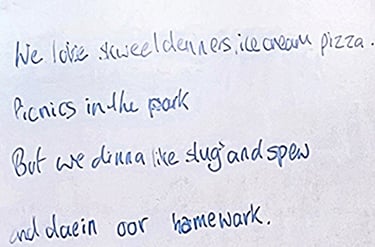 We love skweel denners, ice cream pizza.
Picnics in the park
But we dinna like slug and spew
and daein oor hamewark.